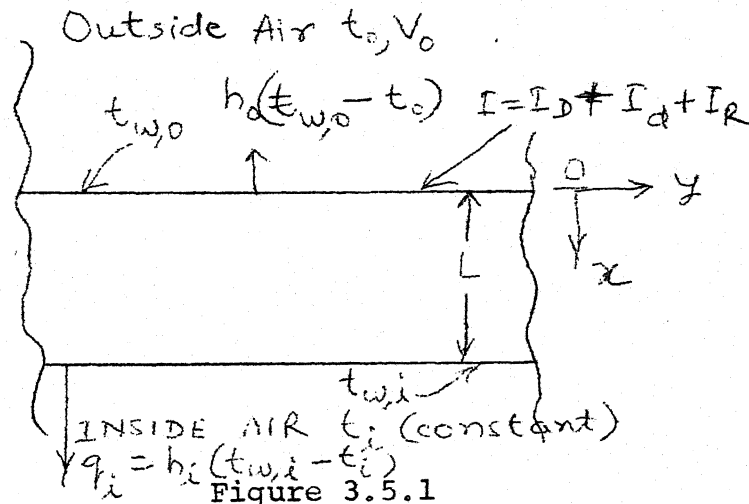 Outside Air t₀, V₀
t_{w,o} h₀(t_{w,o} - t₀) I = I_D + I_d + I_R
O y
L
x
t_{w,i}
INSIDE AIR t_i (constant)
q_i = h_i (t_{w,i} - t_i)
Figure 3.5.1